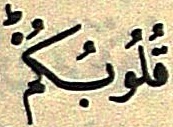 قُلُوبُكُمْ ۚ